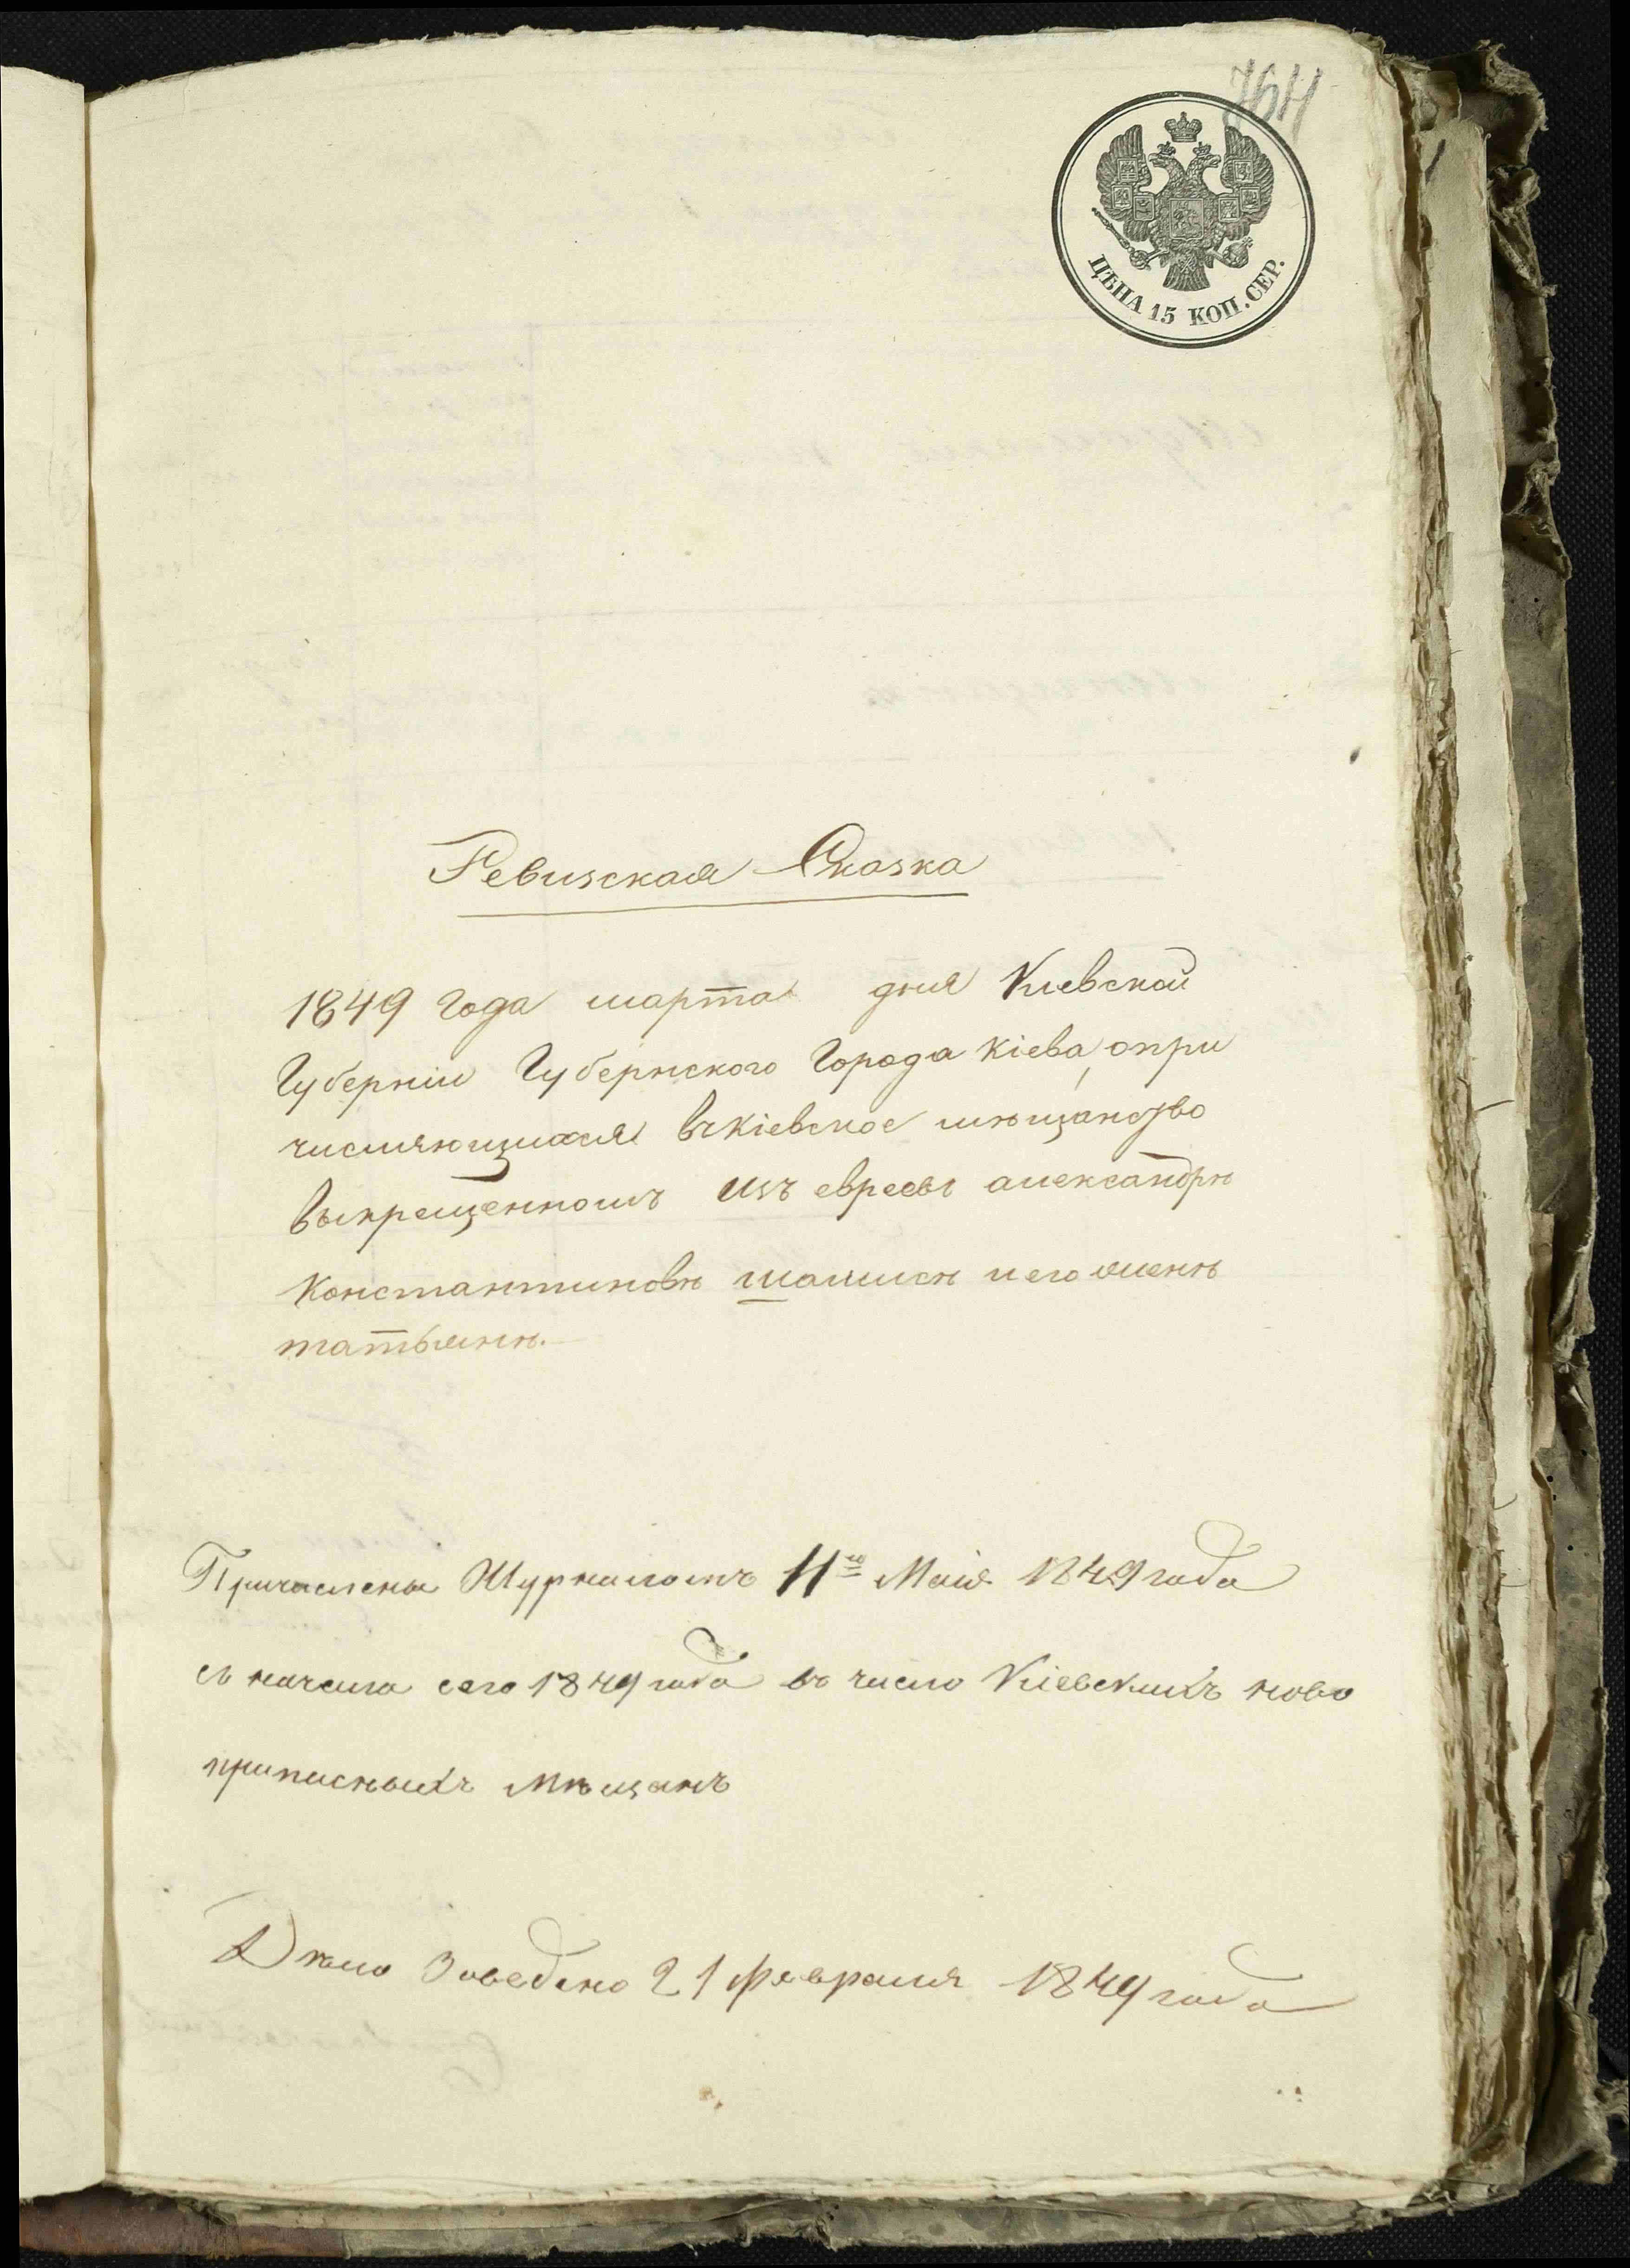 764
ЦѢНА 15 КОП. СЕР.
Ревизская Сказка
1849 года марта дня Киевской
Губерніи Губернского Города Кіева, опри
числяющихся вкіевское мѣщанство
выкрещенномъ изъ евреевъ александрѣ
Константиновѣ шамисѣ и его женѣ
татьянѣ.
Причислены Журналомъ 11го Маія 1849 года
съ начала сего 1849 года въ число Кіевскихъ ново
приписныхъ мѣщанъ
Дѣло Заведено 21 февраля 1849 года